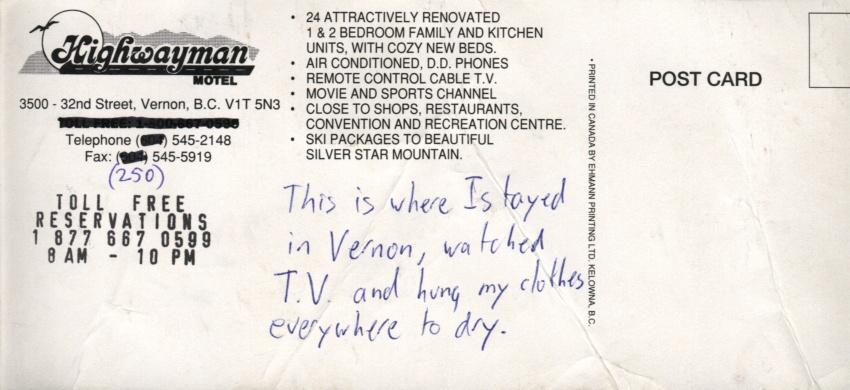 Highwayman
MOTEL
3500 - 32nd Street, Vernon, B.C. V1T 5N3
TOLL FREE: 1-800-667-0598
Telephone (604) 545-2148
Fax: (604) 545-5919
(250)
TOLL FREE
RESERVATIONS
1 877 667 0599
8 AM - 10 PM
• 24 ATTRACTIVELY RENOVATED
1 & 2 BEDROOM FAMILY AND KITCHEN
UNITS, WITH COZY NEW BEDS.
• AIR CONDITIONED, D.D. PHONES
• REMOTE CONTROL CABLE T.V.
• MOVIE AND SPORTS CHANNEL
• CLOSE TO SHOPS, RESTAURANTS,
CONVENTION AND RECREATION CENTRE.
• SKI PACKAGES TO BEAUTIFUL
SILVER STAR MOUNTAIN.
This is where I stayed
in Vernon, watched
T.V. and hung my clothes
everywhere to dry.
• PRINTED IN CANADA BY EHMANN PRINTING LTD. KELOWNA, B.C.
POST CARD